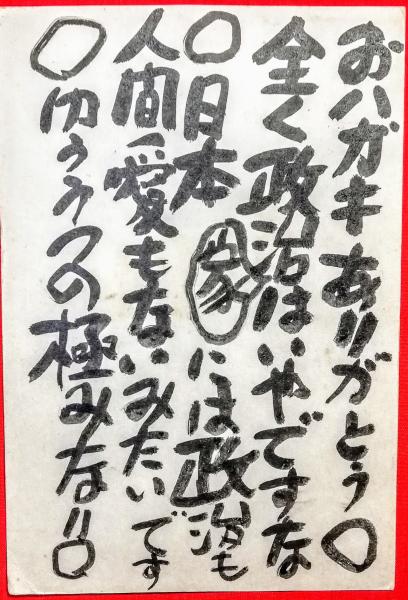 おハガキありがとう〇
全く政治はいやですな
〇日本家には政治も
人間愛もないみたいです
〇ゆううつの極みなり〇